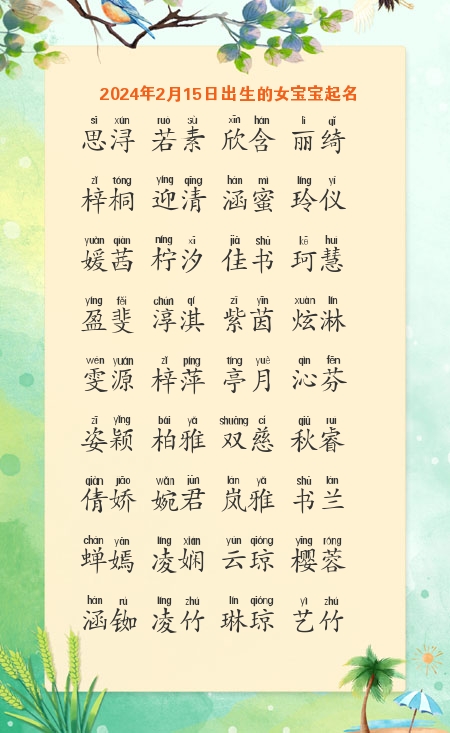 2024年2月15日出生的女宝宝起名
sī xún ruò sù xīn hán lì qǐ
思浔 若素 欣含 丽绮
zǐ tóng yíng qīng hán mì líng yí
梓桐 迎清 涵蜜 玲仪
yuàn qiàn níng xī jiā shū kē huì
媛茜 柠汐 佳书 珂慧
yíng fěi chún qí zǐ yīn xuàn lín
盈斐 淳淇 紫茵 炫淋
wén yuán zǐ píng tíng yuè qìn fēn
雯源 梓萍 亭月 沁芬
zī yǐng bǎi yǎ shuāng cí qiū ruì
姿颖 柏雅 双慈 秋睿
qiàn jiāo wǎn jūn lán yǎ shū lán
倩娇 婉君 岚雅 书兰
chán yān líng xián yún qióng yīng róng
蝉嫣 凌娴 云琼 樱蓉
hán rú líng zhú lín qióng yì zhú
涵铷 凌竹 琳琼 艺竹